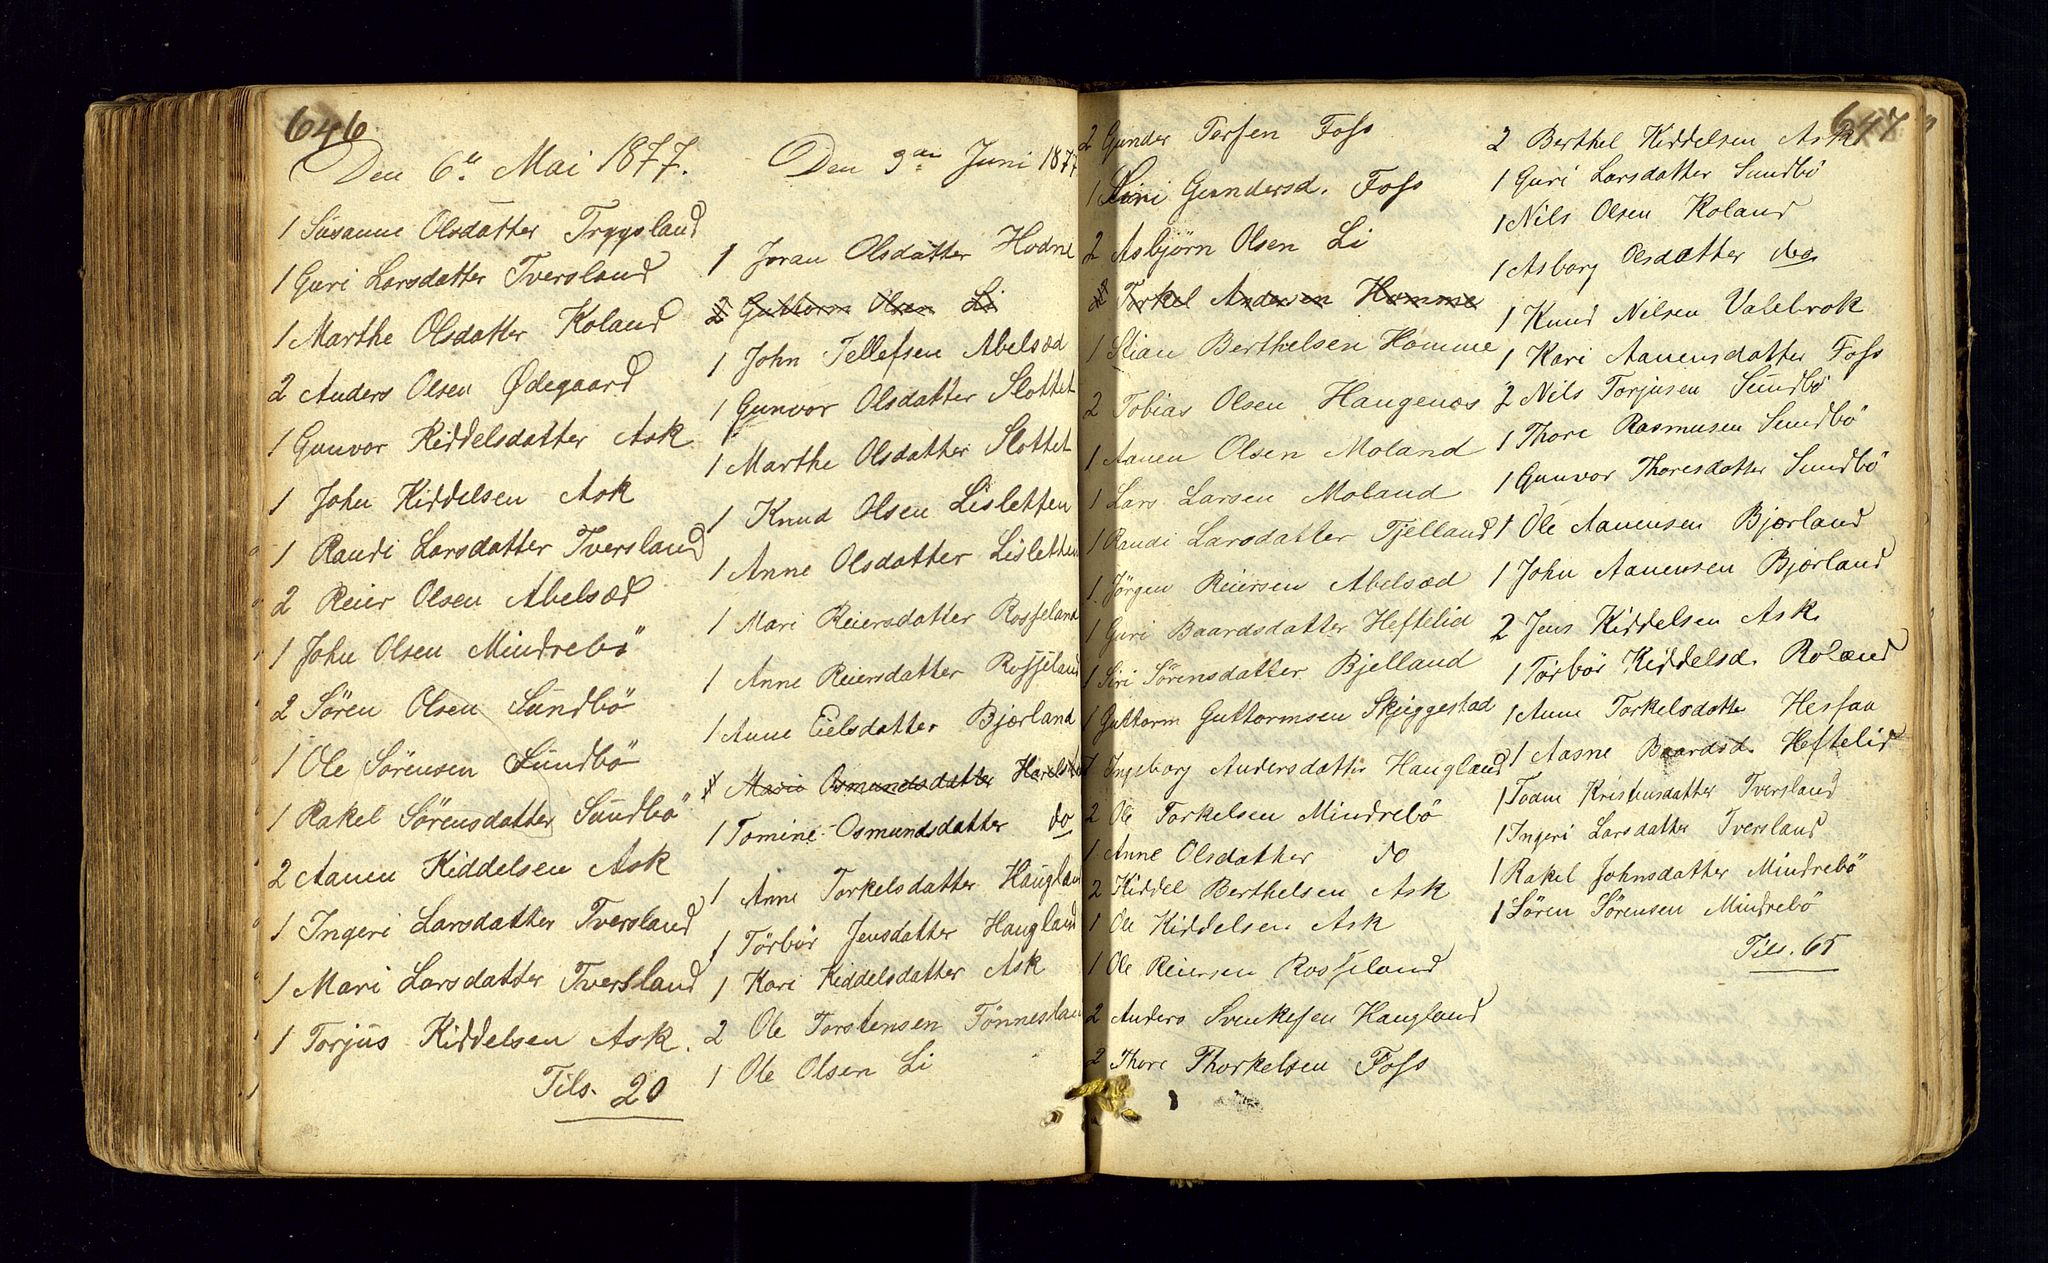 646
Den 6te Mai 1877.
1 Susanne Olsdatter Trygsland
1 Guri Larsdatter Tversland
1 Marthe Olsdatter Koland
2 Anders Olsen Ødegaard
1 Gunvor Kiddelsdatter Ask
1 John Kiddelsen Ask
1 Randi Larsdatter Tversland
2 Reier Olsen Abelsæd
1 John Olsen Mindrebö
2 Sören Olsen Sundbö
1 Ole Sörensen Sundbö
1 Rakel Sörensdatter Sundbö
2 Aanen Kiddelsen Ask
1 Ingeri Larsdatter Tversland
1 Mari Larsdatter Tversland
1 Torjus Kiddelsen Ask.
Tils. 20
Den 3die Juni 1877
1 Joran Olsdatter Hodne
2 Guttorm Olsen Li
1 John Tellefsen Abelsæd
1 Gunvor Olsdatter Slottet
1 Marthe Olsdatter Slottet
1 Knud Olsen Lisletten
1 Anne Olsdatter Lisletten
1 Mari Reiersdatter Rosseland
1 Anne Reiersdatter Rosseland
1 Anne Eielsdatter Bjærland
1 Marie Osmundsdatter
1 Tomine Osmundsdatter do
1 Anne Torkelsdatter Haugland
1 Törbör Jensdatter Haugland
1 Kari Kiddelsdatter Ask
2 Ole Torstensen Tönnesland
1 Ole Olsen Li
2 Gunder Terjsen Foss
1 Siri Gundersd. Foss
2 Asbjörn Olsen Li
2 Torkel Andersen Homme
1 Stian Berthelsen Homme
2 Tobias Olsen Haugenæs
1 Aanen Olsen Moland
1 Lars Larsen Moland
1 Randi Larsdatter Fjelland
1 Jörgen Reiersen Abelsæd
1 Guri Baardsdatter Heftelid
1 Siri Sörensdatter Bjelland
1 Guttorm Guttormsen Skjeggestad
1 Ingeborg Andersdatter Haugland
2 Ole Torkelsen Mindrebö
1 Anne Olsdatter do
2 Kiddel Berthelsen Ask
1 Ole Kiddelsen Ask
1 Ole Reiersen Rosseland
2 Anders Svenkesen Haugland
2 Thore Thorkelsen Foss
647
2 Berthel Kiddelsen Ask
1 Guri Larsdatter Sundbö
1 Nils Olsen Koland
1 Asborg Olsdatter do
1 Knud Nilsen Valebrok
1 Kari Aanensdatter Foss
2 Nils Torjusen Sundbö
1 Thore Rasmusen Sundbö
1 Gunvor Thoresdatter Sundbö
1 Ole Aanensen Bjærland
1 John Aanensen Bjærland
2 Jens Kiddelsen Ask
1 Törbör Kiddelsd. Roland
1 Anne Torkelsdatter Hesfaa
1 Aasne Baardsd. Heftelid
1 Kristensdatter Tversland
1 Ingeri Larsdatter Tversland
1 Rakel Johnsdatter Mindrebö
1 Sören Sörensen Mindrebö
Tils. 65